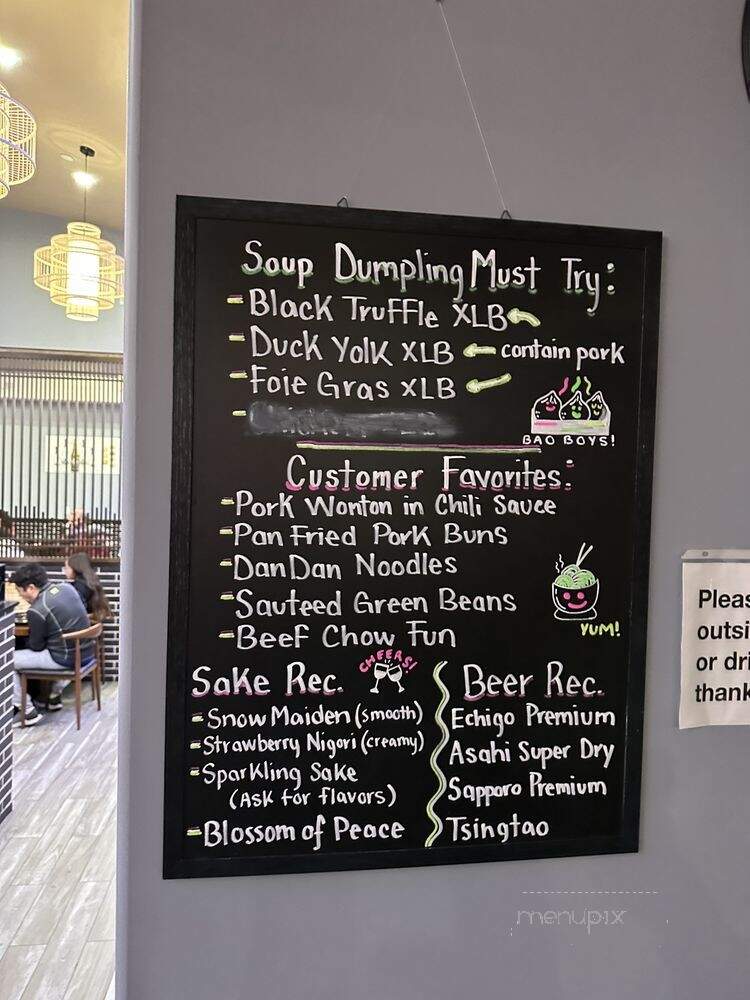 Soup Dumpling Must Try:
- Black Truffle XLB
- Duck Yolk XLB contain pork
- Foie Gras XLB
BAO BOYS!
Customer Favorites:
- Pork Wonton in Chili Sauce
- Pan Fried Pork Buns
- DanDan Noodles
- Sauteed Green Beans
- Beef Chow Fun
YUM!
CHEERS!
Sake Rec.
- Snow Maiden (smooth)
- Strawberry Nigori (creamy)
- Sparkling Sake
(Ask for flavors)
- Blossom of Peace
Beer Rec.
Echigo Premium
Asahi Super Dry
Sapporo Premium
Tsingtao
Pleas
outsi
or dri
thank
menupix